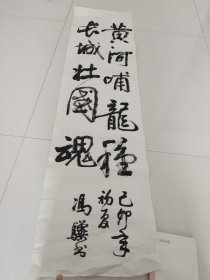 黄河哺龍種
長城壯國魂
己卯年
初夏
馮驥書